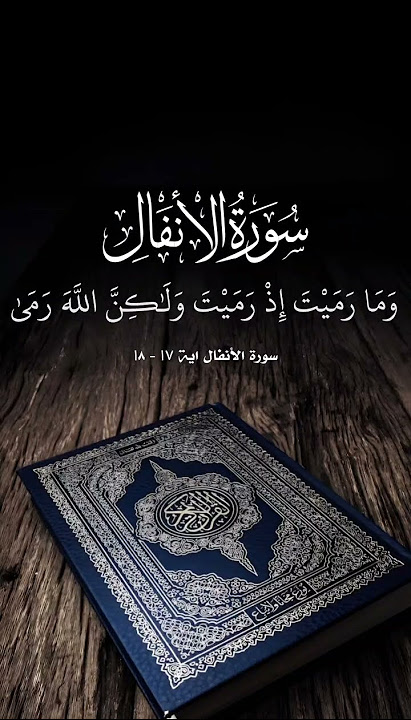 سُورَةُ الأَنفَالِ
وَمَا رَمَيْتَ إِذْ رَمَيْتَ وَلَٰكِنَّ اللَّهَ رَمَىٰ
سورة الأنفال اية ١٧ - ١٨
القرآن الكريم